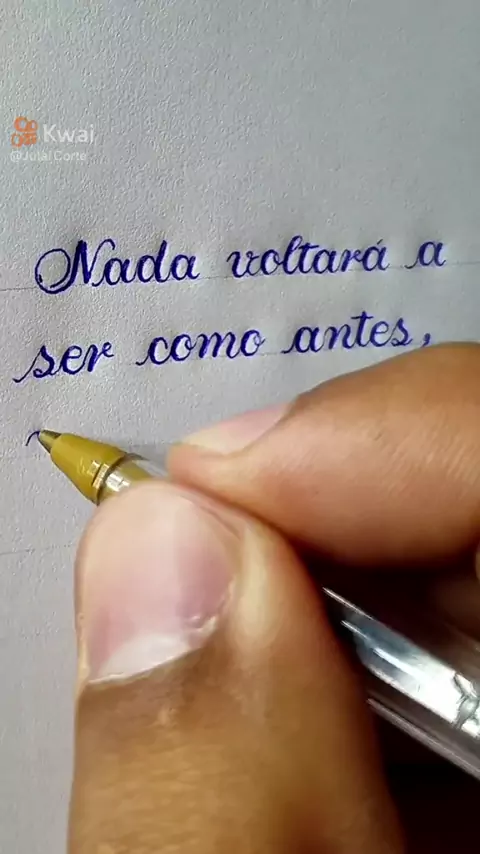 Kwai
@Jotai Corte
Nada voltará a
ser como antes,